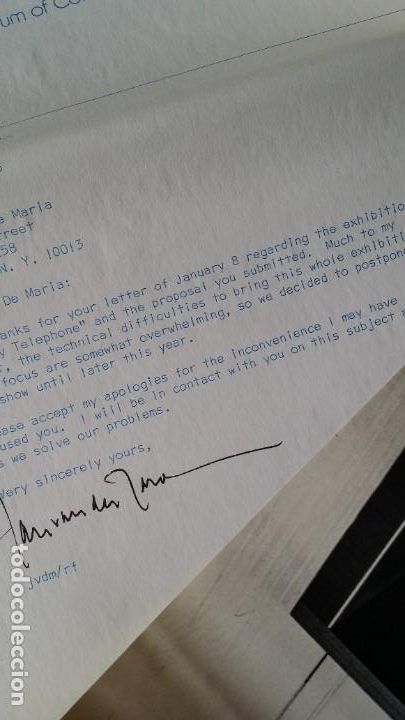 um of Co
e Maria
treet
58
N. Y. 10013
De Maria:
anks for your letter of January 8 regarding the exhibitio
y Telephone" and the proposal you submitted. Much to my
, the technical difficulties to bring this whole exhibiti
focus are somewhat overwhelming, so we decided to postpon
show until later this year.
ase accept my apologies for the inconvenience I may have
used you. I will be in contact with you on this subject a
s we solve our problems.
Very sincerely yours,
jvdm/rf
todocoleccion